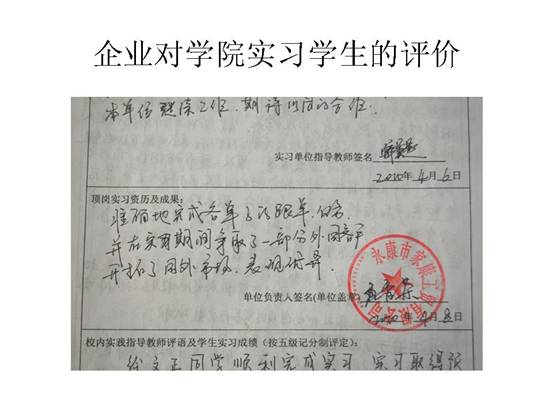 企业对学院实习学生的评价
本单位继续工作，期待以后的合作。
实习单位指导教师签名
2010年4月6日
顶岗实习资历及成果：
准确地完成各单子的跟单，任务
并在实习期间争取了一部分外国客户
开拓了国外市场，表现优异。
永康市家
工
有限公司
单位负责人签名(单位盖章)
2010年4月8日
校内实践指导教师评语及学生实习成绩（按五级记分制评定）：
同学顺利完成实习，实习取得